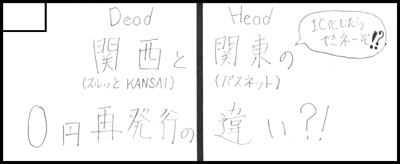 Dead Head
関西と 関東の
(スルッとKANSAI) (パスネット)
0円再発行の 違い?!
IC化したら
ぜネーぞ!?